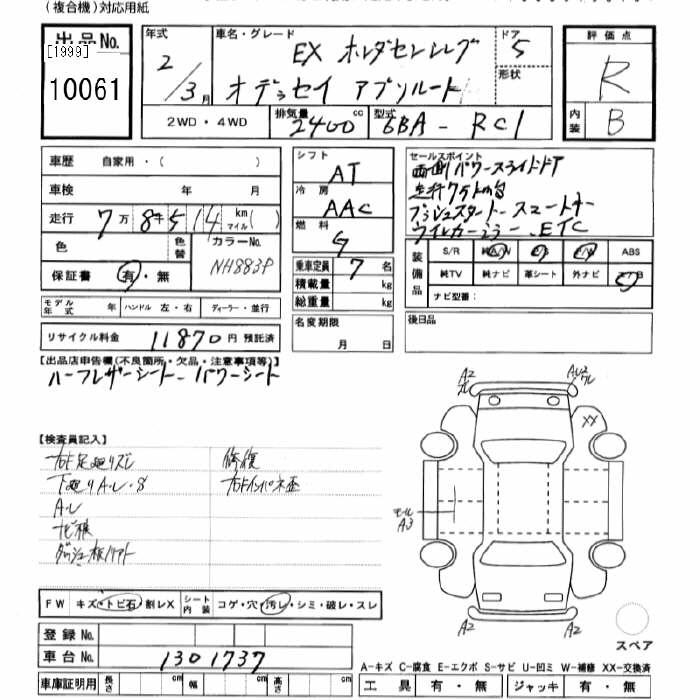 (複合機)対応用紙
出品No.
[1999]
10061
年式
2/3月
車名・グレード
EX ホンダセンシング
オデッセイ アブソルート
ドア
5
形状
評価点
R
内装
B
2WD・4WD
排気量
2400cc
型式
6BA - RC1
車歴 自家用・( )
車検 年 月
走行 7万 8千 514 km マイル( )
色
色替
カラーNo.
NH883P
保証書 有・無
モデル年式 年 ハンドル 左・右 ディーラー・並行
リサイクル料金 11870円 預託済
シフト
AT
冷房
AAC
燃料
G
乗車定員 7 名
積載量 kg
総重量 kg
名変期限
月 日
セールスポイント
両側パワースライドドア
走行7万km台
プッシュスタート スマートキー
ウインカーミラー、ETC
装備品
S/R 純A/W P/S P/W ABS
純TV 純ナビ 革シート 外ナビ エアB
ナビ型番:
後日品
【出品店申告欄(不良箇所・欠品・注意事項等)】
ハーフレザーシート パワーシート
【検査員記入】
右F足廻りズレ
修復
下廻りAル・S
右Fインパネ歪
Aル
ナビ横
FW キズ・トビ石・割レX シート内装 コゲ・穴・汚レ・シミ・破レ・スレ
登録No.
車台No. 1301737
車庫証明用 長さ cm 幅 cm 高さ cm
A2
A2
XX
モール
A3
A2
A2
スペア
A-キズ C-腐食 E-エクボ S-サビ U-凹ミ W-補修 XX-交換済
工具 有・無 ジャッキ 有・無